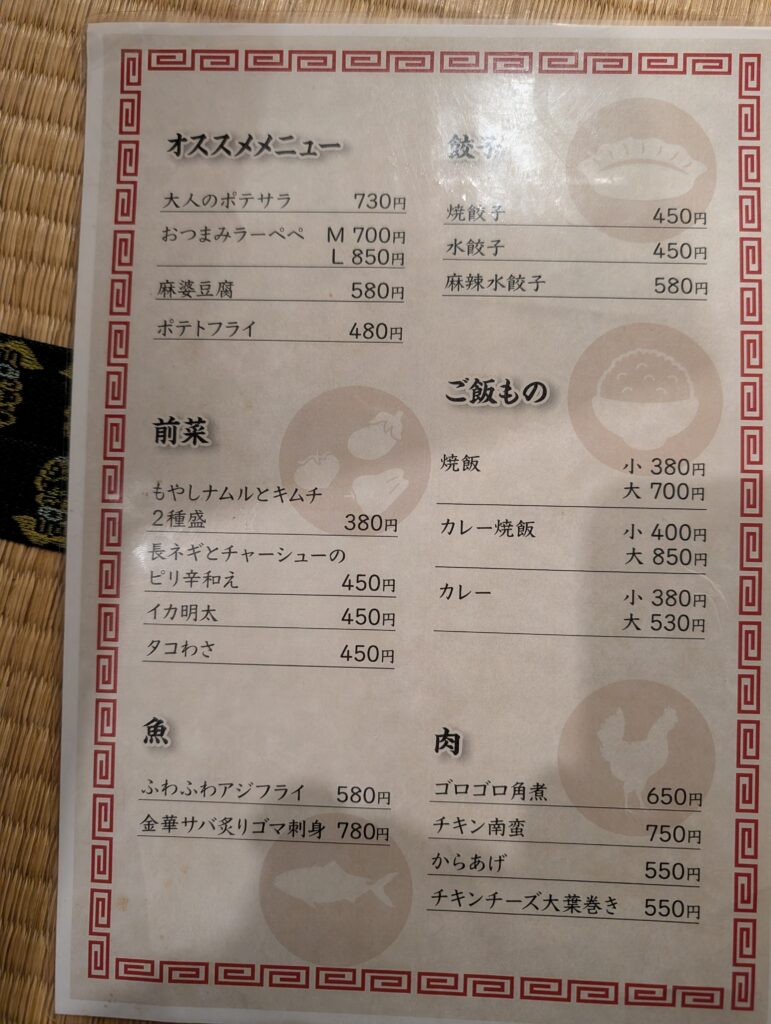 オススメメニュー
大人のポテサラ 730円
おつまみラーペペ M 700円
L 850円
麻婆豆腐 580円
ポテトフライ 480円
前菜
もやしナムルとキムチ
2種盛 380円
長ネギとチャーシューの
ピリ辛和え 450円
イカ明太 450円
タコわさ 450円
魚
ふわふわアジフライ 580円
金華サバ炙りゴマ刺身 780円
餃子
焼餃子 450円
水餃子 450円
麻辣水餃子 580円
ご飯もの
焼飯 小 380円
大 700円
カレー焼飯 小 400円
大 850円
カレー 小 380円
大 530円
肉
ゴロゴロ角煮 650円
チキン南蛮 750円
からあげ 550円
チキンチーズ大葉巻き 550円